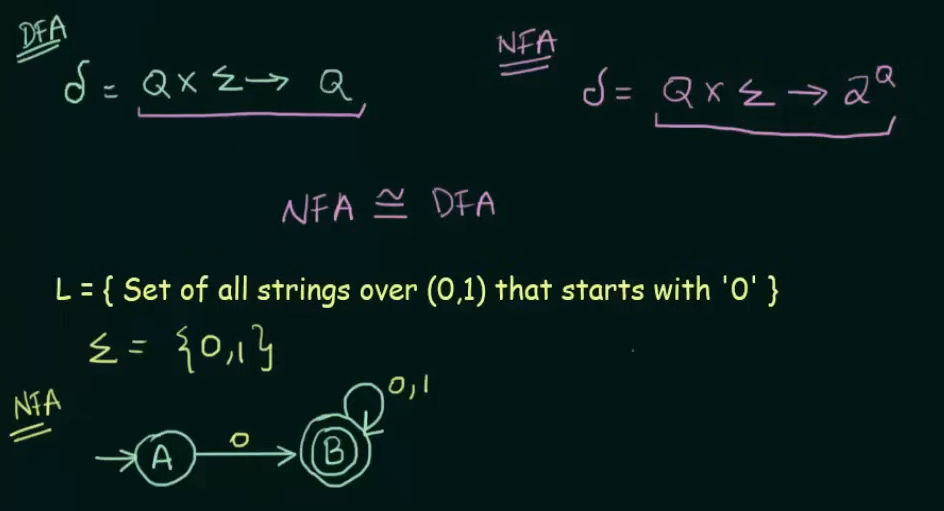 DFA
δ = Q × Σ → Q
NFA
δ = Q × Σ → 2^Q
NFA ≅ DFA
L = { Set of all strings over (0,1) that starts with '0' }
Σ = {0,1}
NFA
A 0 B 0,1